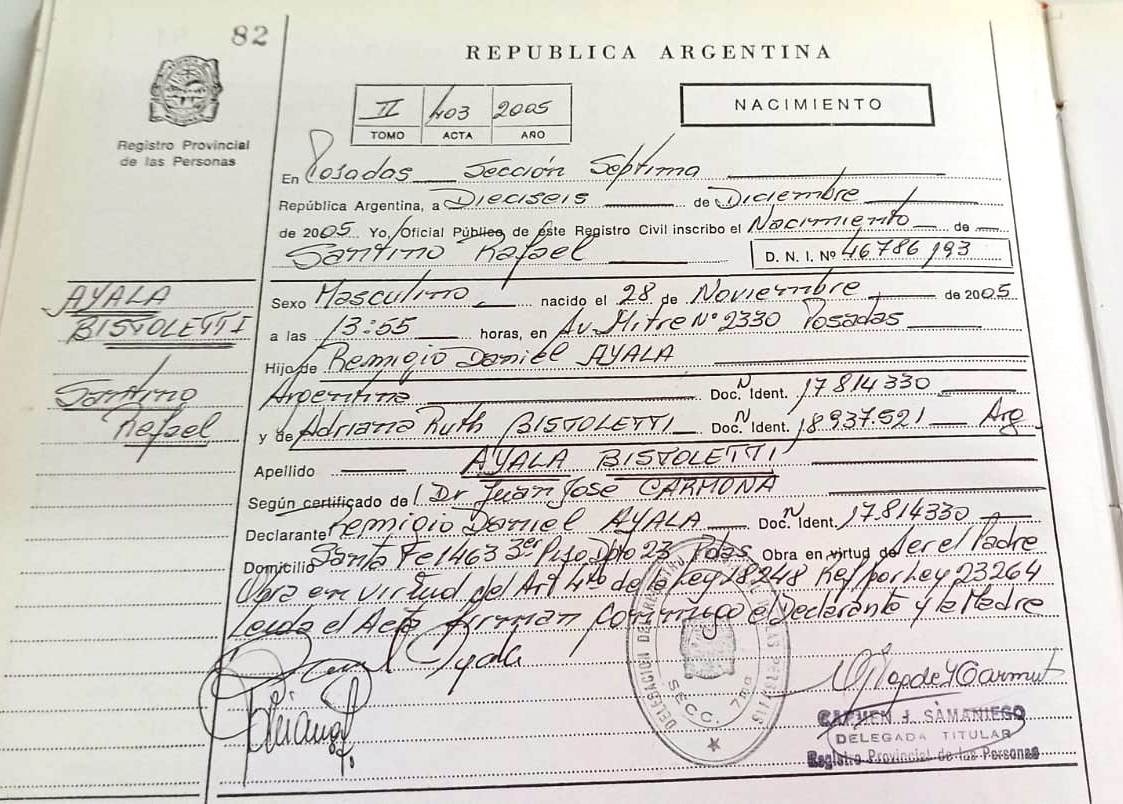 82
REPUBLICA ARGENTINA
Registro Provincial
de las Personas
II 403 2005
TOMO ACTA AÑO
NACIMIENTO
En Posadas Sección Séptima
República Argentina, a Dieciseis de Diciembre
de 2005 Yo, Oficial Público, de este Registro Civil inscribo el Nacimiento de
Santino Rafael D. N. I. Nº 46786193
AYALA
BISTOLETTI
Santino
Rafael
Sexo Masculino nacido el 28 de Noviembre de 2005
a las 13:55 horas, en Av. Mitre Nº 2330 Posadas
Hijo de Remigio Daniel AYALA
Argentina Doc. N Ident. 17814330
y de Adriana Ruth BISTOLETTI Doc. N Ident. 18937.521 Arg
Apellido AYALA BISTOLETTI
Según certificado de l Dr Juan José CARMONA
Declarante Remigio Daniel AYALA Doc. N Ident. 17.814330
Domicilio Santa Fe 1463 3er Piso Dpto 23 Pdas Obra en virtud de Ser el Padre
Obra en virtud del Art 4to de la Ley 18248 Ref por Ley 23264
Leida el Acta firman conmigo el Declarante y la Madre
DELEGACION
SECC. 7ma
CARMEN J. SAMANIEGO
DELEGADA TITULAR
Registro Provincial de las Personas